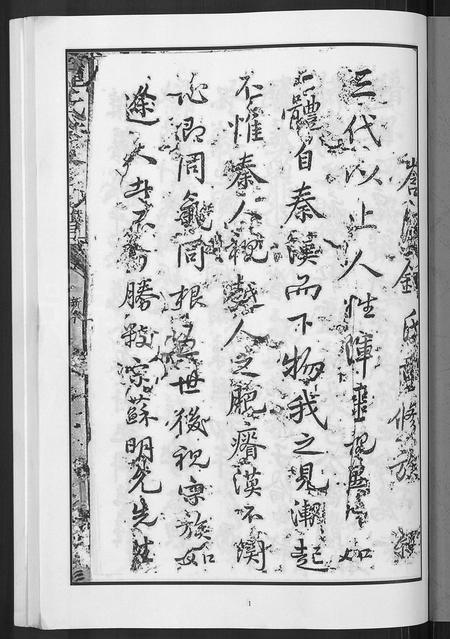 鍾氏重修族
三代以上人性渾噩視萬如
一體自秦漢而下物我之見漸起
不惟秦人視越人之肥瘠漠不關
心即同氣同根世後視宗族如
途人者不可勝數宗蘇明允先生
1